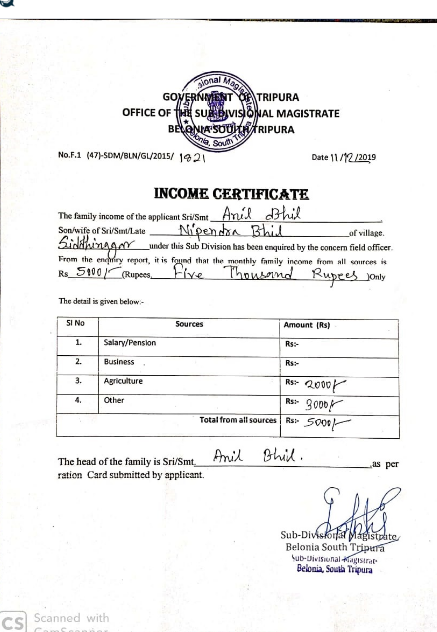 GOVERNMENT OF TRIPURA
OFFICE OF THE SUB-DIVISIONAL MAGISTRATE
BELONIA SOUTH TRIPURA
No.F.1 (47)-SDM/BLN/GL/2015/ 1821 Date 11/12/2019
INCOME CERTIFICATE
The family income of the applicant Sri/Smt Anil Bhil
Son/wife of Sri/Smt/Late Nipendra Bhil of village.
Siddhinagar under this Sub Division has been enquired by the concern field officer.
From the enquiry report, it is found that the monthly family income from all sources is
Rs 5000/- (Rupees, Five Thousand Rupees )Only
The detail is given below:-
Sl No Sources Amount (Rs)
1. Salary/Pension Rs:-
2. Business Rs:-
3. Agriculture Rs:- 2000/-
4. Other Rs:- 3000/-
Total from all sources Rs:- 5000/-
The head of the family is Sri/Smt, Anil Bhil. ,as per
ration Card submitted by applicant.
Sub-Divisional Magistrate
Belonia South Tripura
Sub-Divisional Magistrate
Belonia, South Tripura
CS Scanned with
CamScanner